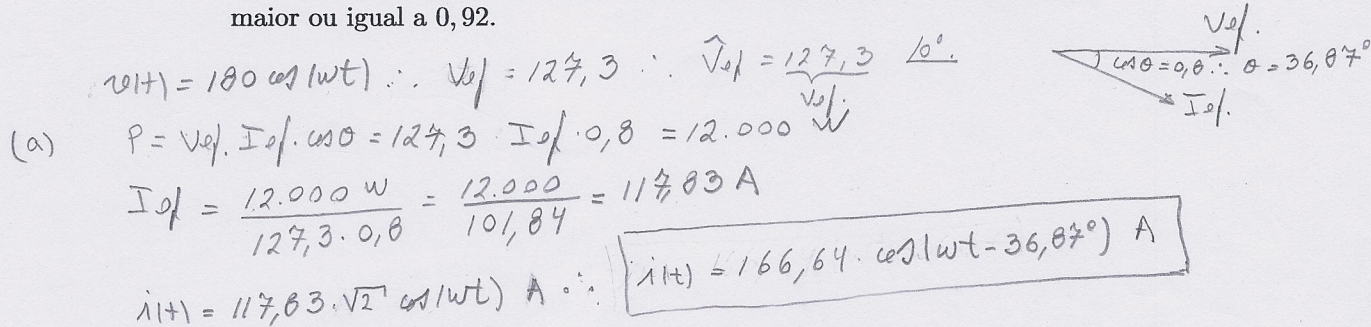 maior ou igual a 0, 92.
v(t) = 180 cos(wt) ∴ Vef = 127,3 ∴ V̂ef = 127,3 /0°.
Vef.
Vef.
cosθ=0,8 ∴ θ = 36,87°
Ief.
(a) P = Vef. Ief. cosθ = 127,3 . Ief . 0,8 = 12.000 W
Ief = 12.000 W / 127,3 . 0,8 = 12.000 / 101,84 = 117,83 A
i(t) = 117,83 . √2 cos(wt) A ∴ i(t) = 166,64 . cos(wt - 36,87°) A